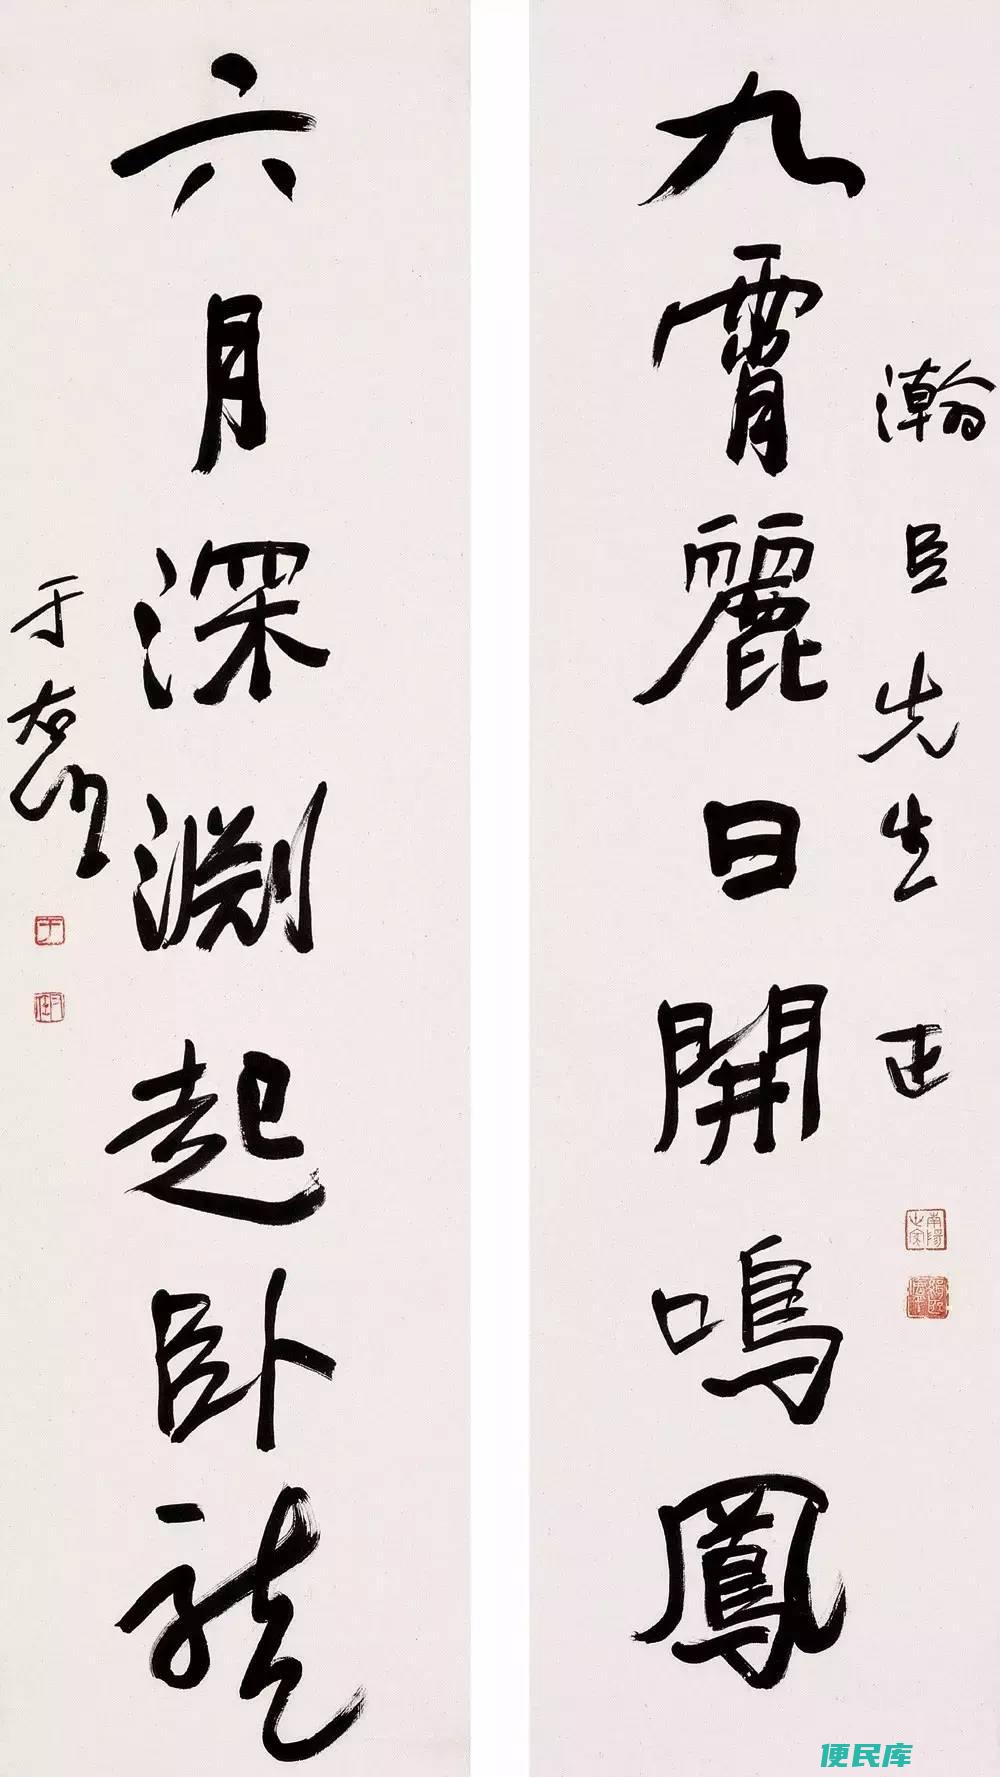 瀚臣先生正
九霄麗日開鳴鳳
六月深淵起卧龍
于右任
于
便民库